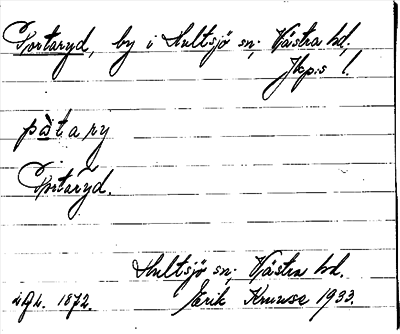 Portaryd, by i Hultsjö sn; Västra hd,
Jkp:s l.
pòtary
Portaryd.
Hultsjö sn; Västra hd.
1872. Erik Kruuse 1933.